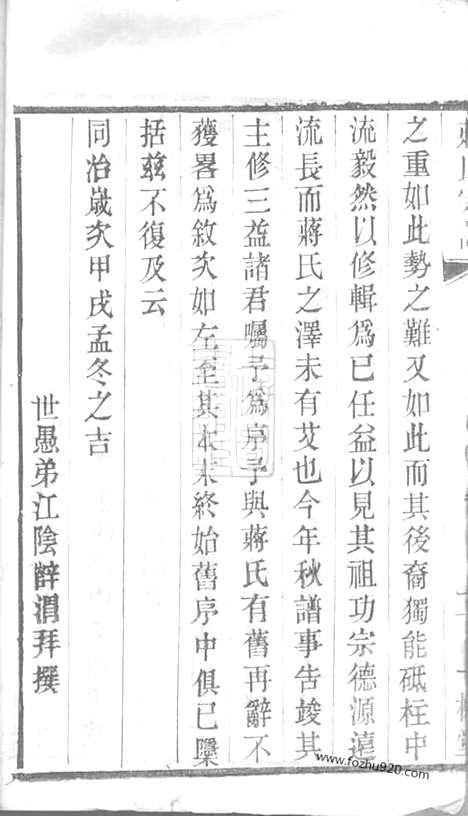 之重如此勢之難又如此而其後裔獨能砥柱中
流毅然以修輯爲已任益以見其祖功宗德源遠
流長而蔣氏之澤未有艾也今年秋譜事告竣其
主修三益諸君囑予爲序予與蔣氏有舊再辭不
獲畧爲敘次如左至其本末終始舊序中俱已檃
括兹不復及云
同治歲次甲戌孟冬之吉
世愚弟江陰薛渭拜撰
www.fozhu920.com